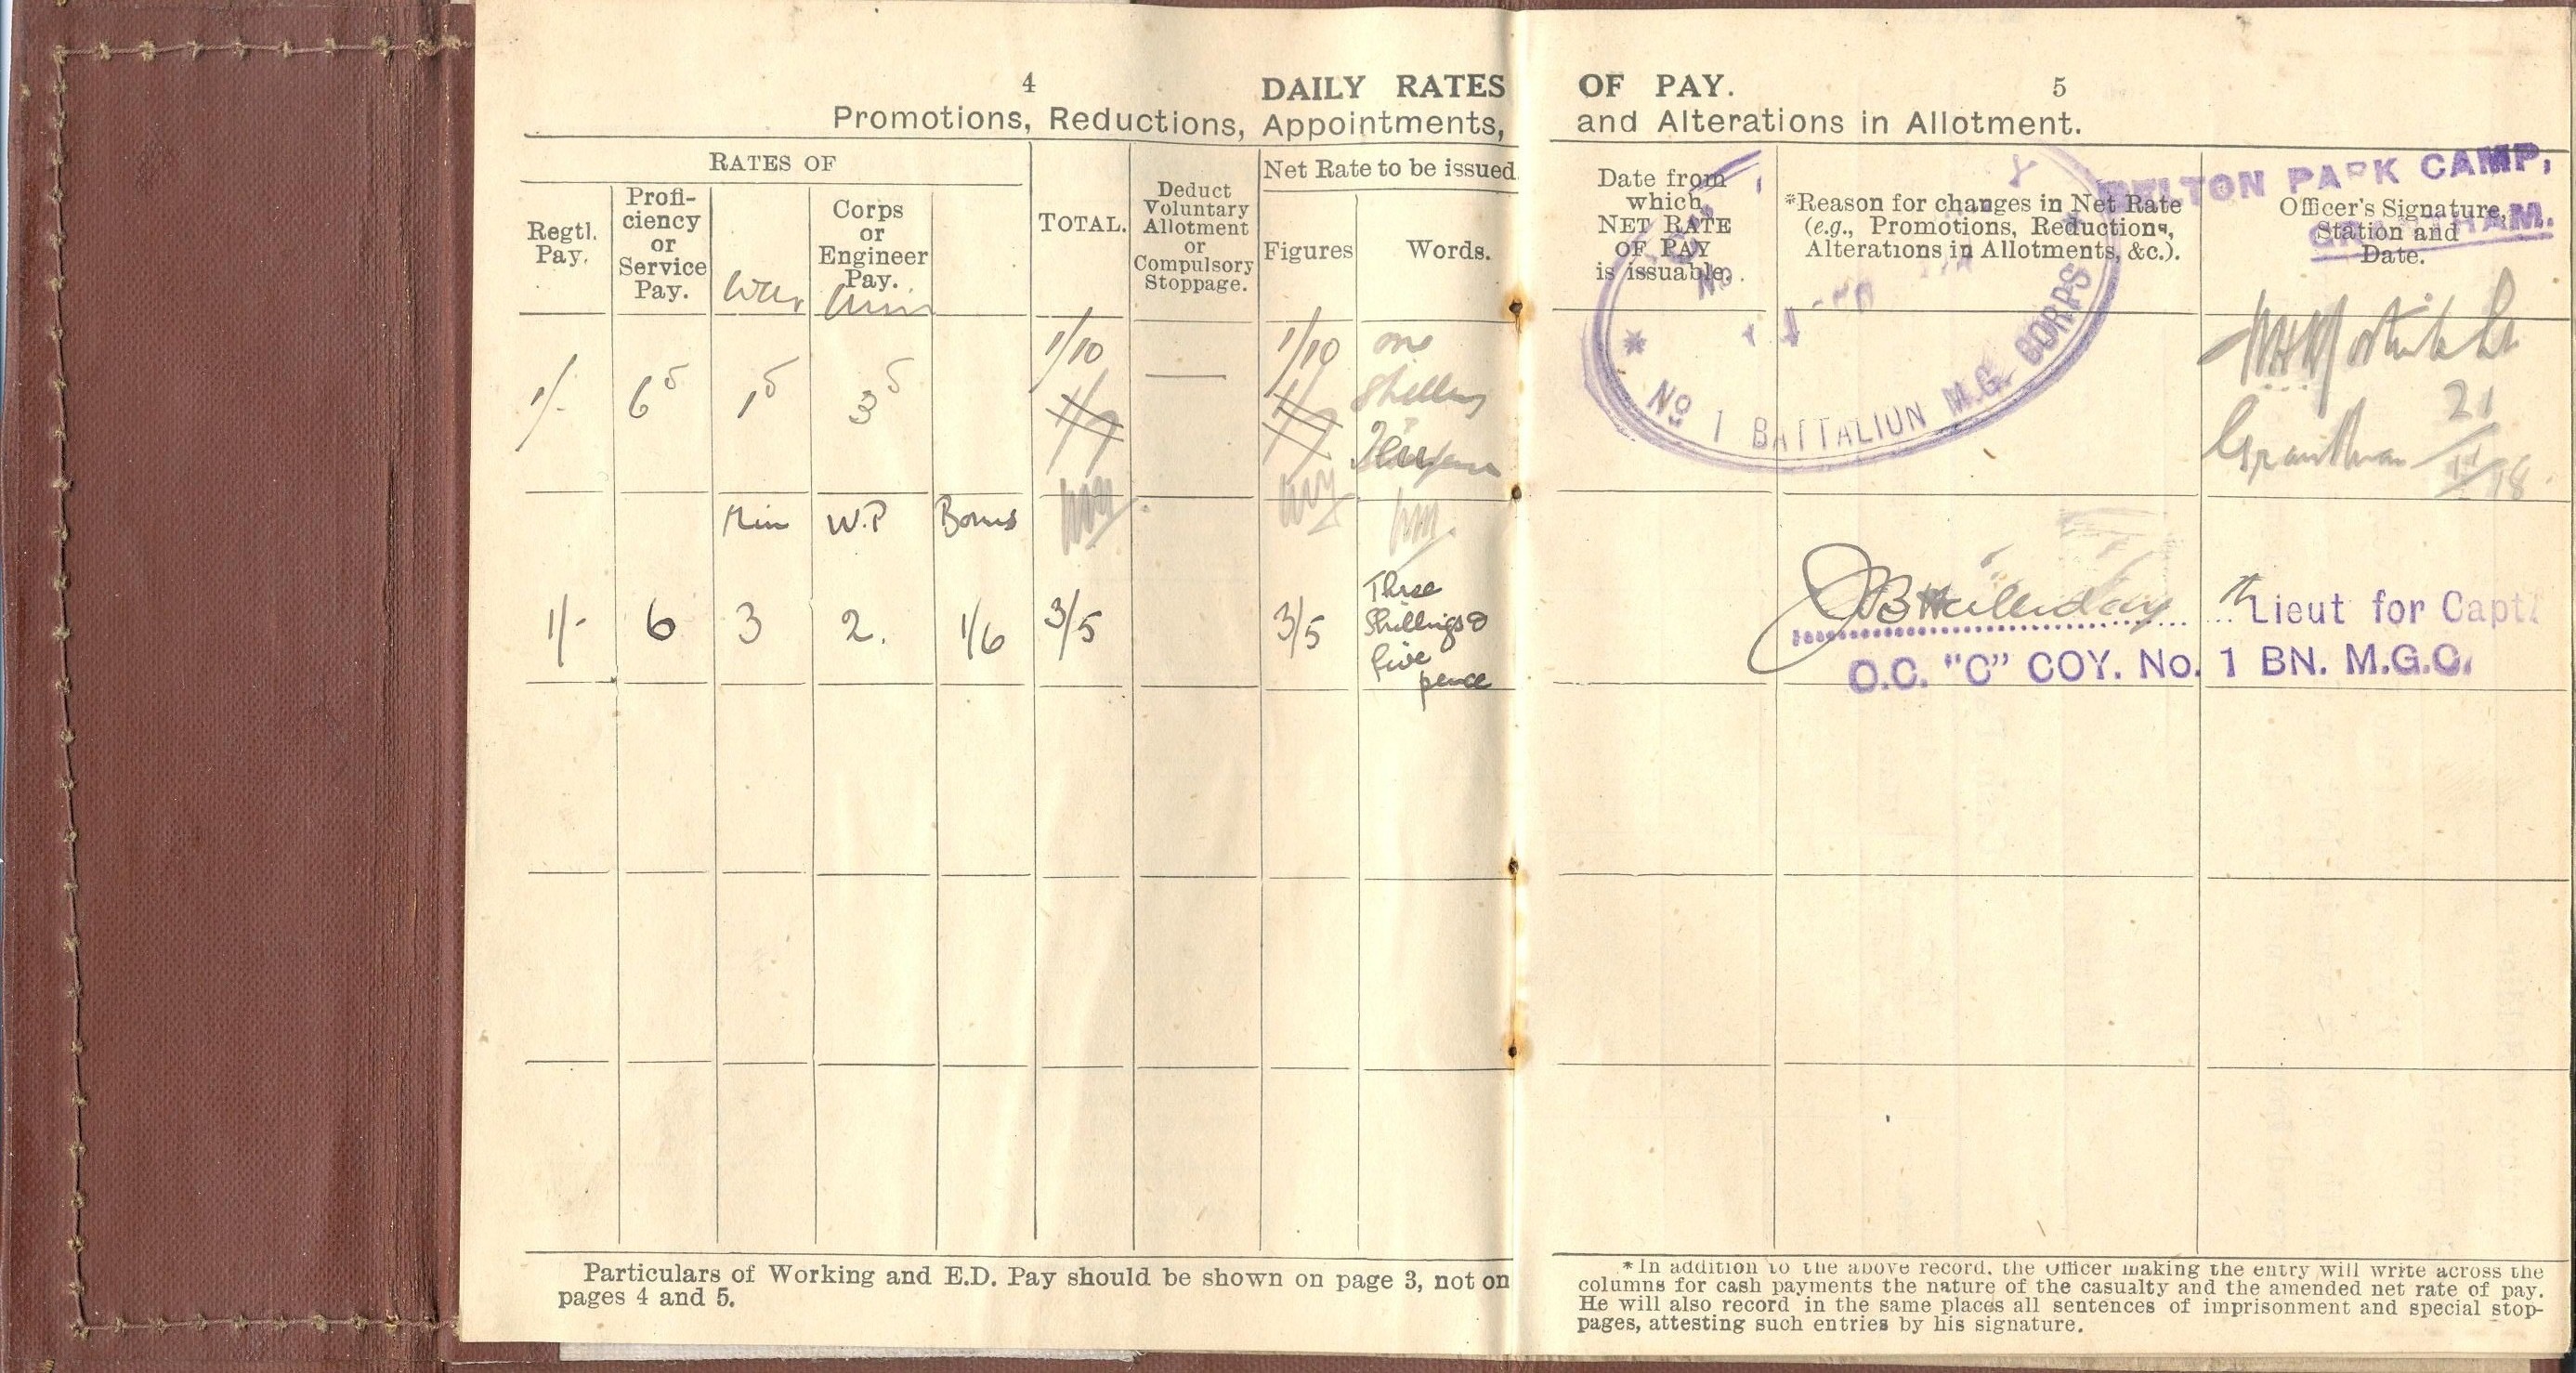 4 DAILY RATES OF PAY. 5
Promotions, Reductions, Appointments, and Alterations in Allotment.
RATES OF
Regtl. Pay.
Profi-
ciency
or
Service
Pay.
War
Corps
or
Engineer
Pay.
Min
TOTAL.
Deduct
Voluntary
Allotment
or
Compulsory
Stoppage.
Net Rate to be issued
Figures
Words.
Date from
which
NET RATE
OF PAY
is issuable.
*Reason for changes in Net Rate
(e.g., Promotions, Reductions,
Alterations in Allotments, &c.).
Officer's Signature,
Station and
Date.
BELTON PARK CAMP,
GRANTHAM.
No 1 BATTALION M.G. CORPS
1/- 6 1 3 1/10 — 1/10 one
Grantham 21/11/18
Min W.P Bonus
1/- 6 3 2. 1/6 3/5 3/5 Three
Shillings &
five
pence
JB Halliday Lieut for Capt.
O.C. "C" COY. No. 1 BN. M.G.C.
Particulars of Working and E.D. Pay should be shown on page 3, not on
pages 4 and 5.
*In addition to the above record, the Officer making the entry will write across the
columns for cash payments the nature of the casualty and the amended net rate of pay.
He will also record in the same places all sentences of imprisonment and special stop-
pages, attesting such entries by his signature.